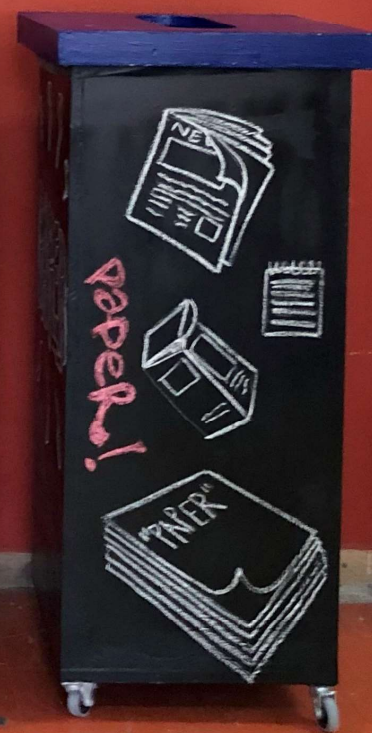 NE
paper!
"PAPER"